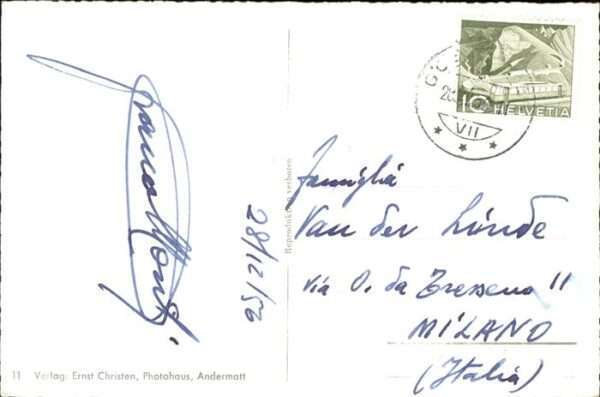 28/12/56
11 Verlag: Ernst Christen, Photohaus, Andermatt
Reproduktion verboten
10 HELVETIA
VII
Famiglia
Van der Linde
via O. da Tresseno 11
MILANO
(Italia)